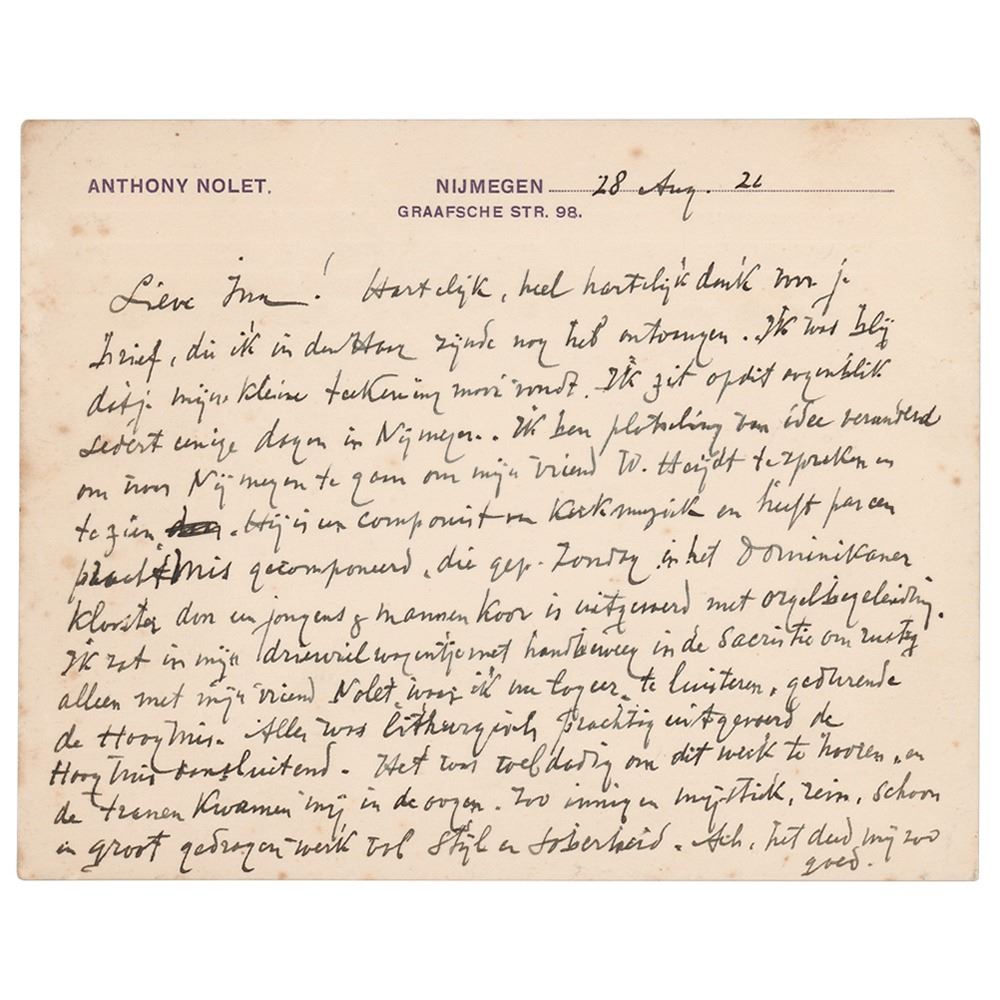 ANTHONY NOLET.
NIJMEGEN 28 Aug. 21
GRAAFSCHE STR. 98.
Lieve ! Hartelijk, heel hartelijk dank voor je
brief, die ik in den Haag zijnde nog heb ontvangen. Ik was blij
dat je mijn kleine teekening mooi vondt. Ik zit op dit oogenblik
sedert eenige dagen in Nijmegen. Ik ben plotseling van idee veranderd
om naar Nijmegen te gaan om mijn vriend W. Heijdt te spreken en
te zien. Hij is een componist van Kerkmuziek en heeft pas een
pracht Mis gecomponeerd, die gep. Zondag in het Dominikaner
klooster door een jongens & mannen koor is uitgevoerd met orgelbegeleiding.
Ik zat in mijn driewielwagentje met handbeweeg in de Sacristie om rustig
alleen met mijn vriend Nolet, waar ik nu logeer, te luisteren, gedurende
de Hoogmis. Alles was lithurgisch prachtig uitgevoerd de
Hoogmis aansluitend. Het was weldadig om dit werk te hooren, en
de tranen kwamen mij in de oogen. Zoo innig en mystiek, rein, schoon
en groot gedragen werk vol Stijl en Soberheid. Ach, het deed mij zoo
goed.